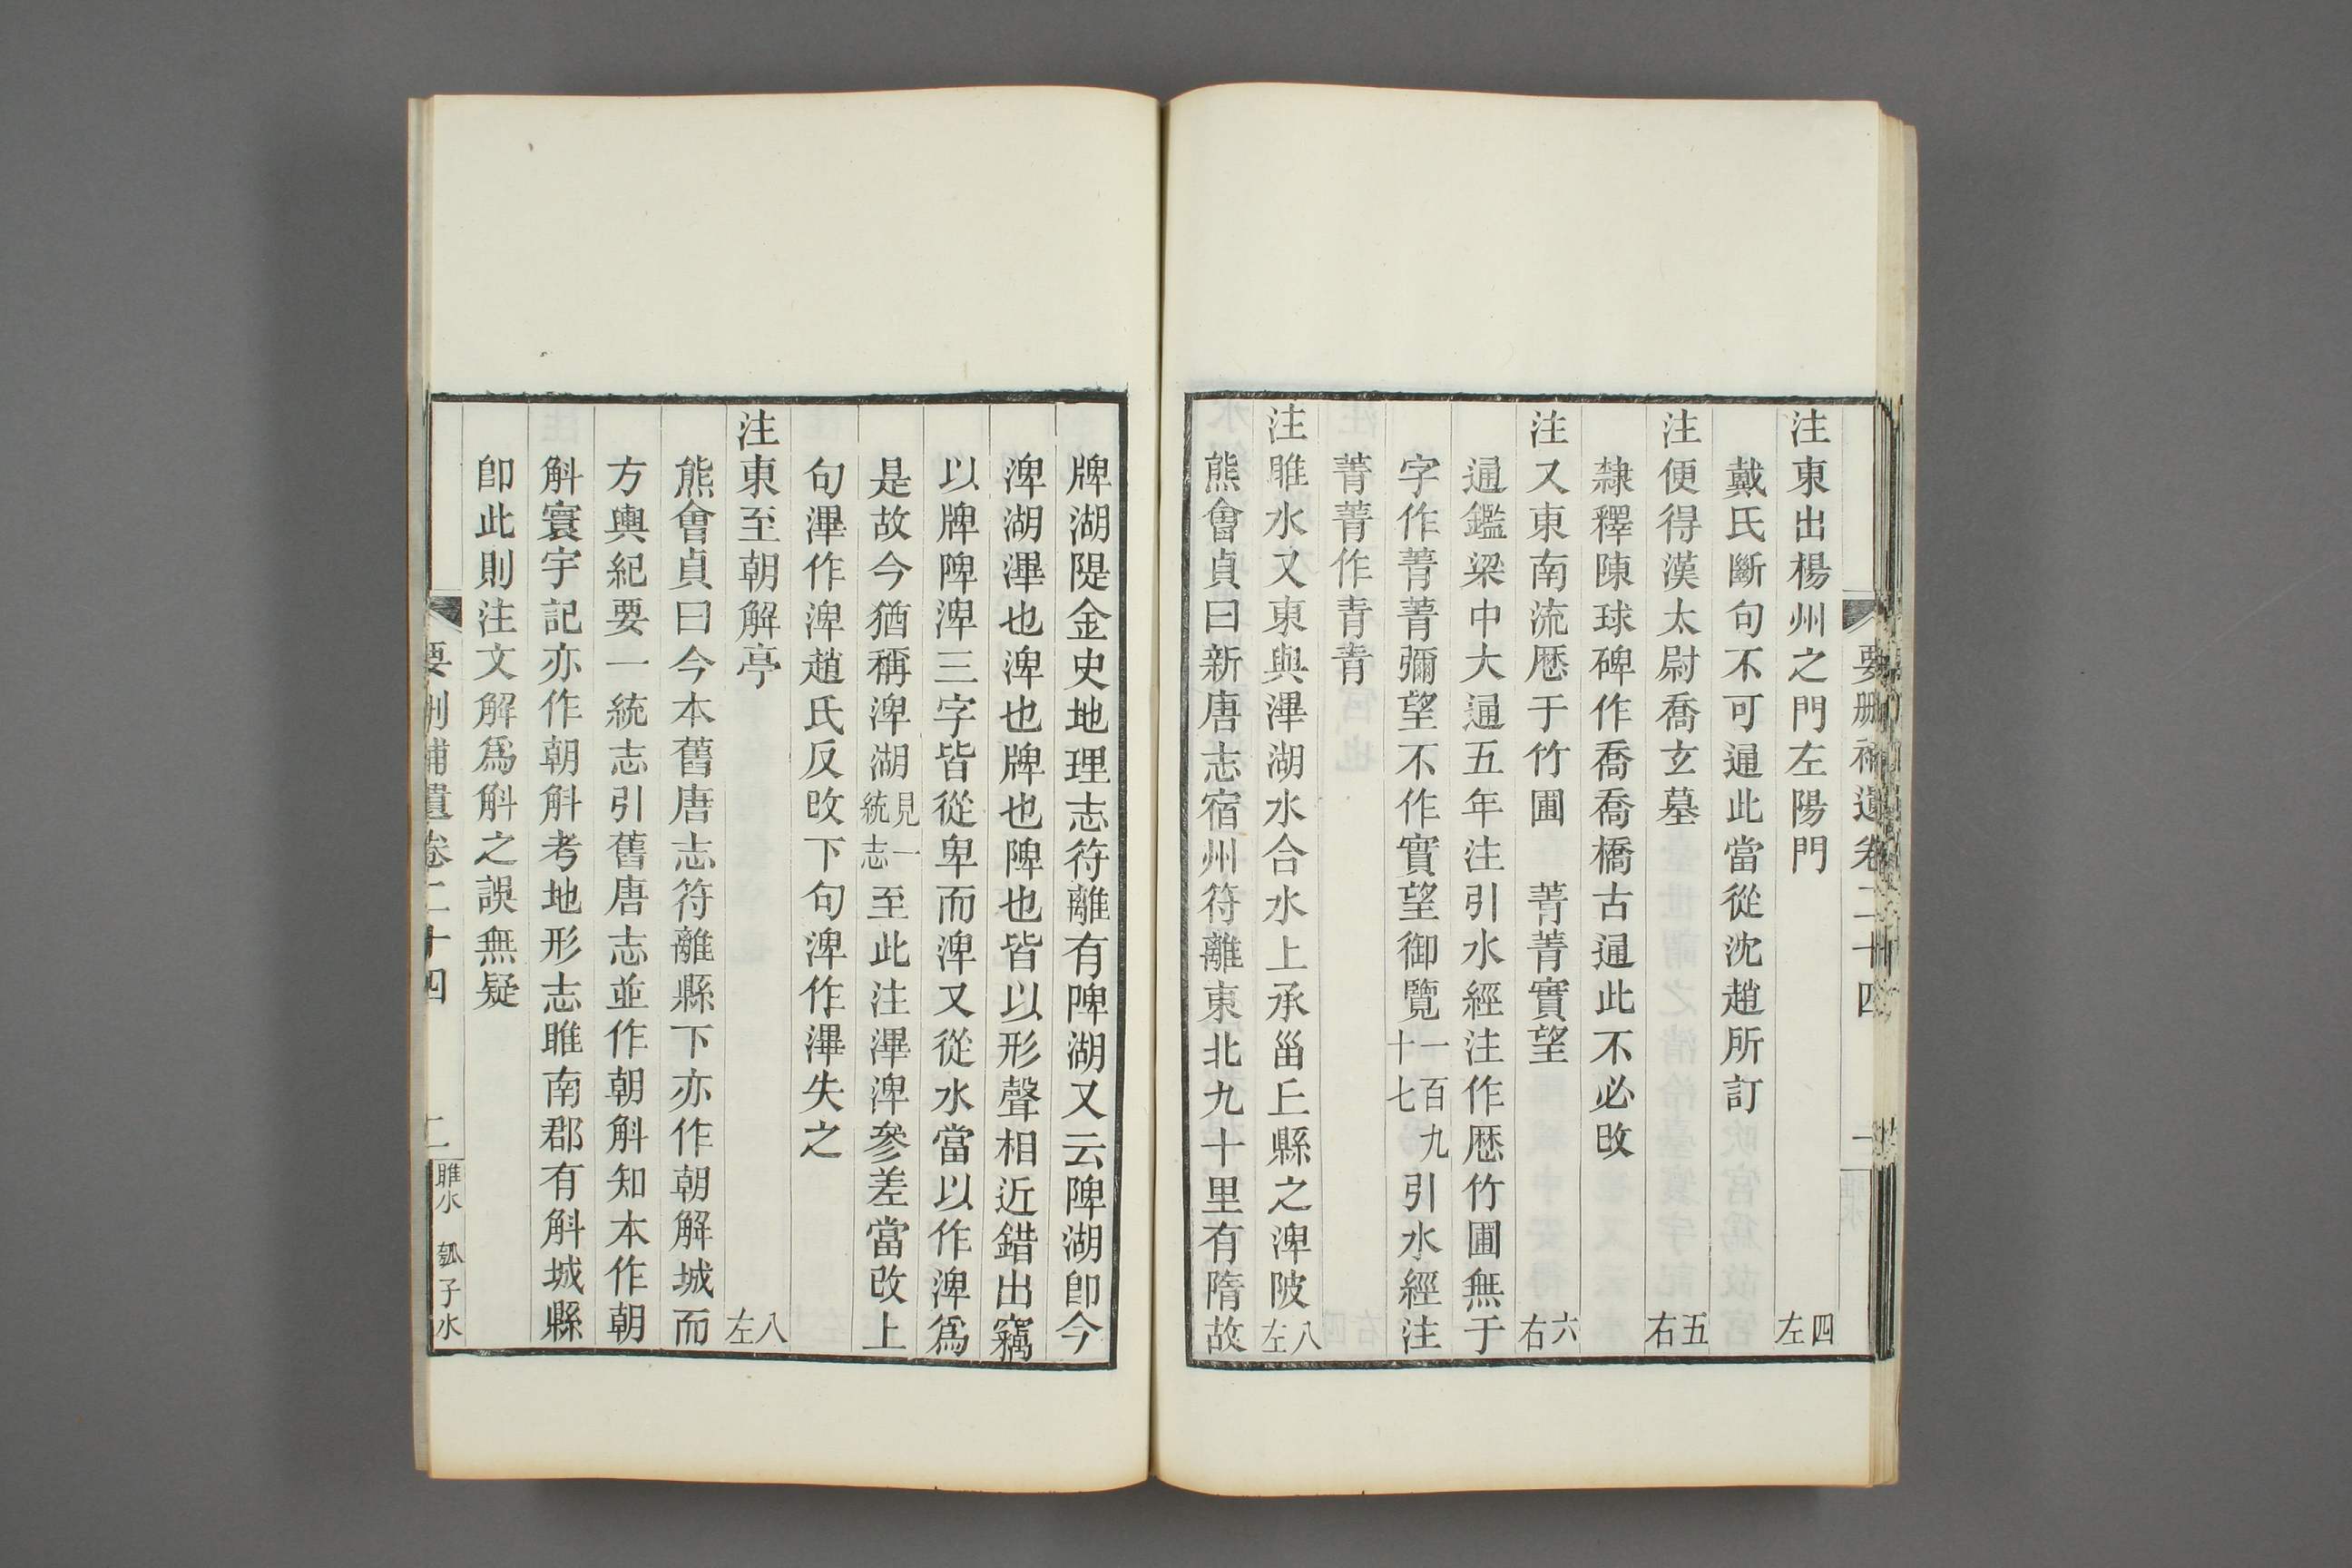 要刪補遺卷二十四 一 睢水
注東出楊州之門左陽門 四左
戴氏斷句不可通此當從沈趙所訂
注便得漢太尉喬玄墓 五右
隸釋陳球碑作喬喬橋古通此不必改
注又東南流歷于竹圃 菁菁實望 六右
通鑑梁中大通五年注引水經注作歷竹圃無于
字作菁菁彌望不作實望御覽一百九十七引水經注
菁菁作青青
注睢水又東與渒湖水合水上承甾丘縣之渒陂 八左
熊會貞曰新唐志宿州符離東北九十里有隋故
牌湖隄金史地理志符離有陴湖又云陴湖卽今
渒湖潭也渒也牌也陴也皆以形聲相近錯出竊
以牌陴渒三字皆從卑而渒又從水當以作渒爲
是故今猶稱渒湖見一統志至此注滭渒參差當改上
句滭作渒趙氏反改下句渒作滭失之
注東至朝解亭 八左
熊會貞曰今本舊唐志符離縣下亦作朝解城而
方輿紀要一統志引舊唐志並作朝斛知本作朝
斛寰宇記亦作朝斛考地形志睢南郡有斛城縣
卽此則注文解爲斛之誤無疑
要刪補遺卷二十四 二 睢水 瓠子水